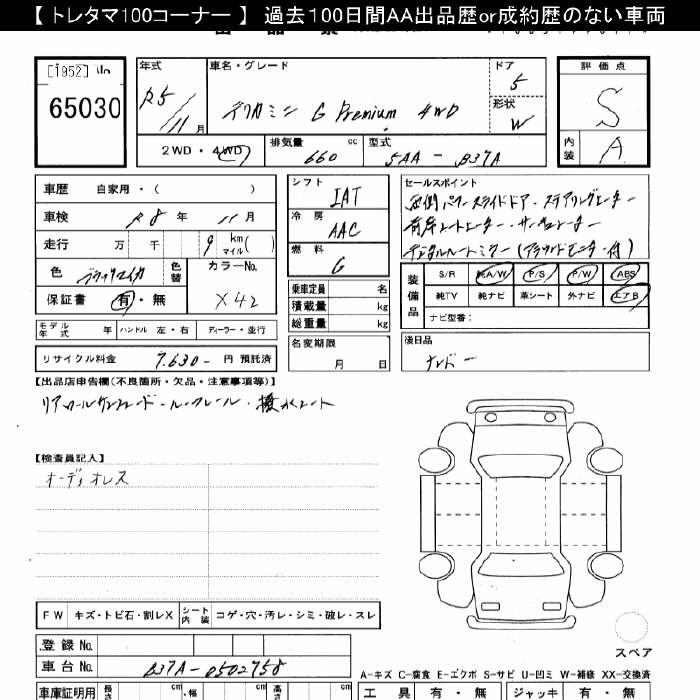 【 トレタマ100コーナー 】 過去100日間AA出品歴or成約歴のない車両
[1952] No.
65030
年式
R5/11月
車名・グレード
デリカミニ G Premium 4WD
ドア
5
形状
W
評価点
S
内装
A
2WD・4WD
排気量 660 cc
型式 5AA-B37A
車歴 自家用・( )
車検 R8年 11月
走行 万 千 9 km マイル( )
色 ブラックマイカ 色替
カラーNo. X42
保証書 有・無
モデル年式 年 ハンドル 左・右 ディーラー・並行
リサイクル料金 7,630- 円 預託済
シフト
IAT
冷房
AAC
燃料
G
乗車定員 名
積載量 kg
総重量 kg
名変期限
月 日
セールスポイント
両側パワースライドドア・ステアリングヒーター
前席シートヒーター・サーキュレーター
デジタルルームミラー(アラウンドモニター付)
装備品
S/R 純A/W P/S P/W ABS
純TV 純ナビ 革シート 外ナビ エアB
ナビ型番:
後日品
ナンバー
【出品店申告欄(不良箇所・欠品・注意事項等)】
リアロールサンシェード・ルーフレール・撥水シート
【検査員記入】
オーディオレス
FW キズ・トビ石・割レX シート内装 コゲ・穴・汚レ・シミ・破レ・スレ
登録 No.
車台 No. B37A-0502758
スペア
A-キズ C-腐食 E-エクボ S-サビ U-凹ミ W-補修 XX-交換済
車庫証明用 長さ cm ・幅 cm 高さ cm
工具 有・無 ジャッキ 有・無